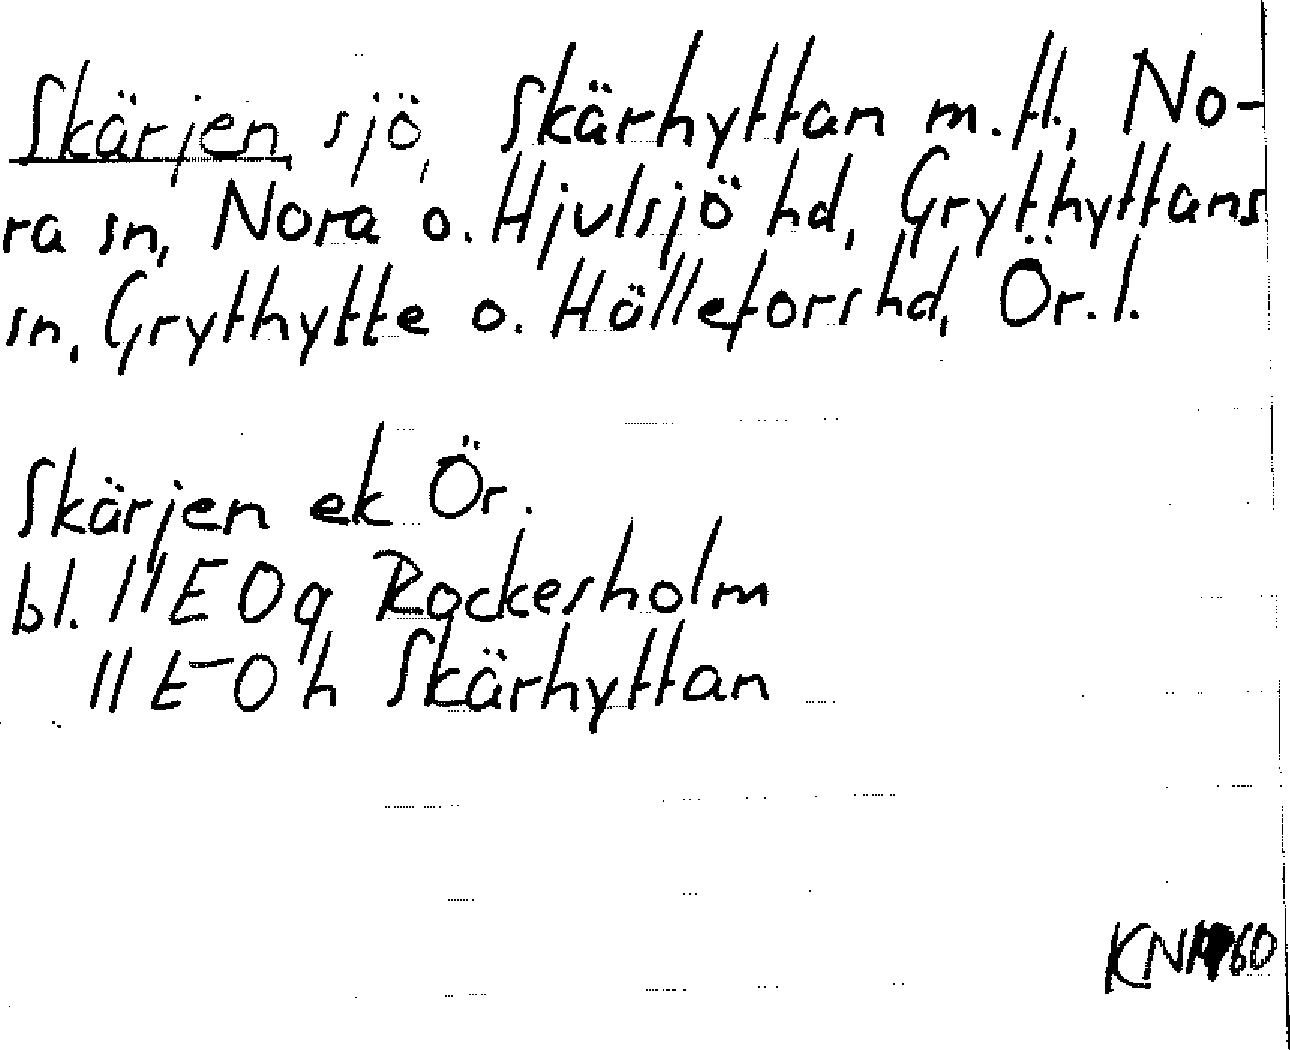 Skärjen, sjö, Skärhyttan m.fl., No-
ra sn, Nora o. Hjulsjö hd, Grythyttans
sn, Grythytte o. Hällefors hd, Ör. l.
Skärjen ek Ör.
bl. 11 E 0 g Rockesholm
11 E 0 h Skärhyttan